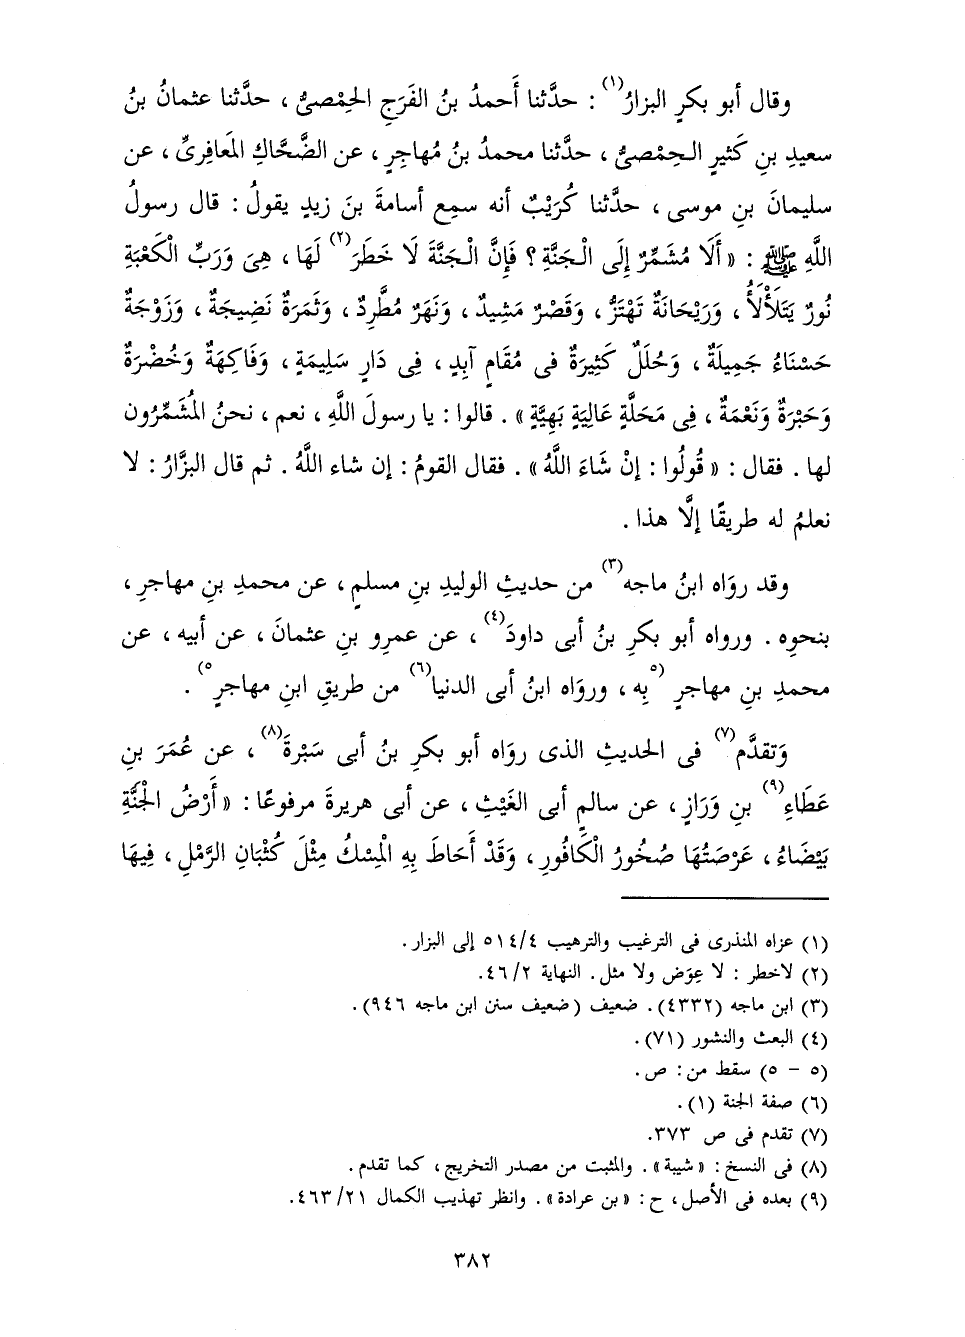 وقال أبو بكرٍ البزارُ(١) : حدَّثنا أَحمدُ بنُ الفَرَجِ الحِمْصىُّ ، حدَّثنا عثمانُ بنُ
سعيدِ بنِ كَثيرٍ الـحِمْصىُّ ، حدَّثنا محمدُ بنُ مُهاجِرٍ ، عن الضَّحَّاكِ المَعافِرىِّ ، عن
سليمانَ بنِ موسى ، حدَّثنا كُرَيْبٌ أنه سمِع أسامةَ بنَ زيدٍ يقولُ : قال رسولُ
اللَّهِ ﷺ : « أَلَا مُشَمِّرٌ إِلَى الْجَنَّةِ ؟ فَإِنَّ الْجَنَّةَ لَا خَطَرَ(٢) لَهَا ، هِىَ وَرَبِّ الْكَعْبَةِ
نُورٌ يَتَلَأْلَأُ ، وَرَيْحَانَةٌ تَهْتَزُّ ، وَقَصْرٌ مَشِيدٌ ، وَنَهَرٌ مُطَّرِدٌ ، وَثَمَرَةٌ نَضِيجَةٌ ، وَزَوْجَةٌ
حَسْنَاءُ جَمِيلَةٌ ، وَحُلَلٌ كَثِيرَةٌ فى مُقَامِ آبِدٍ ، فِى دَارٍ سَلِيمَةٍ ، وَفَاكِهَةٌ وَخُضْرَةٌ
وَحَبْرَةٌ وَنَعْمَةٌ ، فِى مَحَلَّةٍ عَالِيَةٍ بَهِيَّةٍ » . قالوا : يا رسولَ اللَّهِ ، نعم ، نحنُ المُشَمِّرُون
لها . فقال : « قُولُوا : إِنْ شَاءَ اللَّهُ » . فقال القومُ : إن شاء اللَّهُ . ثم قال البزَّارُ : لا
نعلمُ له طريقًا إلَّا هذا .
وقد روَاه ابنُ ماجه(٣) من حديثِ الوليدِ بنِ مسلمٍ ، عن محمدِ بنِ مهاجرٍ ،
بنحوِه . ورواه أبو بكرِ بنُ أبى داودَ(٤) ، عن عمرِو بنِ عثمانَ ، عن أبيه ، عن
محمدِ بنِ مهاجرٍ (٥بِه ، وروَاه ابنُ أبى الدنيا(٦) من طريقِ ابنِ مهاجرٍ٥) .
وَتقدَّم(٧) فى الحديثِ الذى روَاه أبو بكرِ بنُ أبى سَبْرةَ(٨) ، عن عُمَرَ بنِ
عَطَاءِ(٩) بنِ وَرَازٍ ، عن سالمٍ أبى الغَيْثِ ، عن أبى هريرةَ مرفوعًا : « أَرْضُ الْجَنَّةِ
بَيْضَاءُ ، عَرْصَتُهَا صُخُورُ الْكَافُورِ ، وَقَدْ أَحَاطَ بِهِ الْمِسْكُ مِثْلَ كُثْبَانِ الرَّمْلِ ، فِيهَا
(١) عزاه المنذرى فى الترغيب والترهيب ٥١٤/٤ إلى البزار .
(٢) لاخطر : لا عِوَض ولا مثل . النهاية ٤٦/٢ .
(٣) ابن ماجه (٤٣٣٢) . ضعيف (ضعيف سنن ابن ماجه ٩٤٦) .
(٤) البعث والنشور (٧١) .
(٥ - ٥) سقط من : ص .
(٦) صفة الجنة (١) .
(٧) تقدم فى ص ٣٧٣ .
(٨) فى النسخ : « شيبة » . والمثبت من مصدر التخريج ، كما تقدم .
(٩) بعده فى الأصل ، ح : « بن عرادة » . وانظر تهذيب الكمال ٤٦٣/٢١ .
٣٨٢